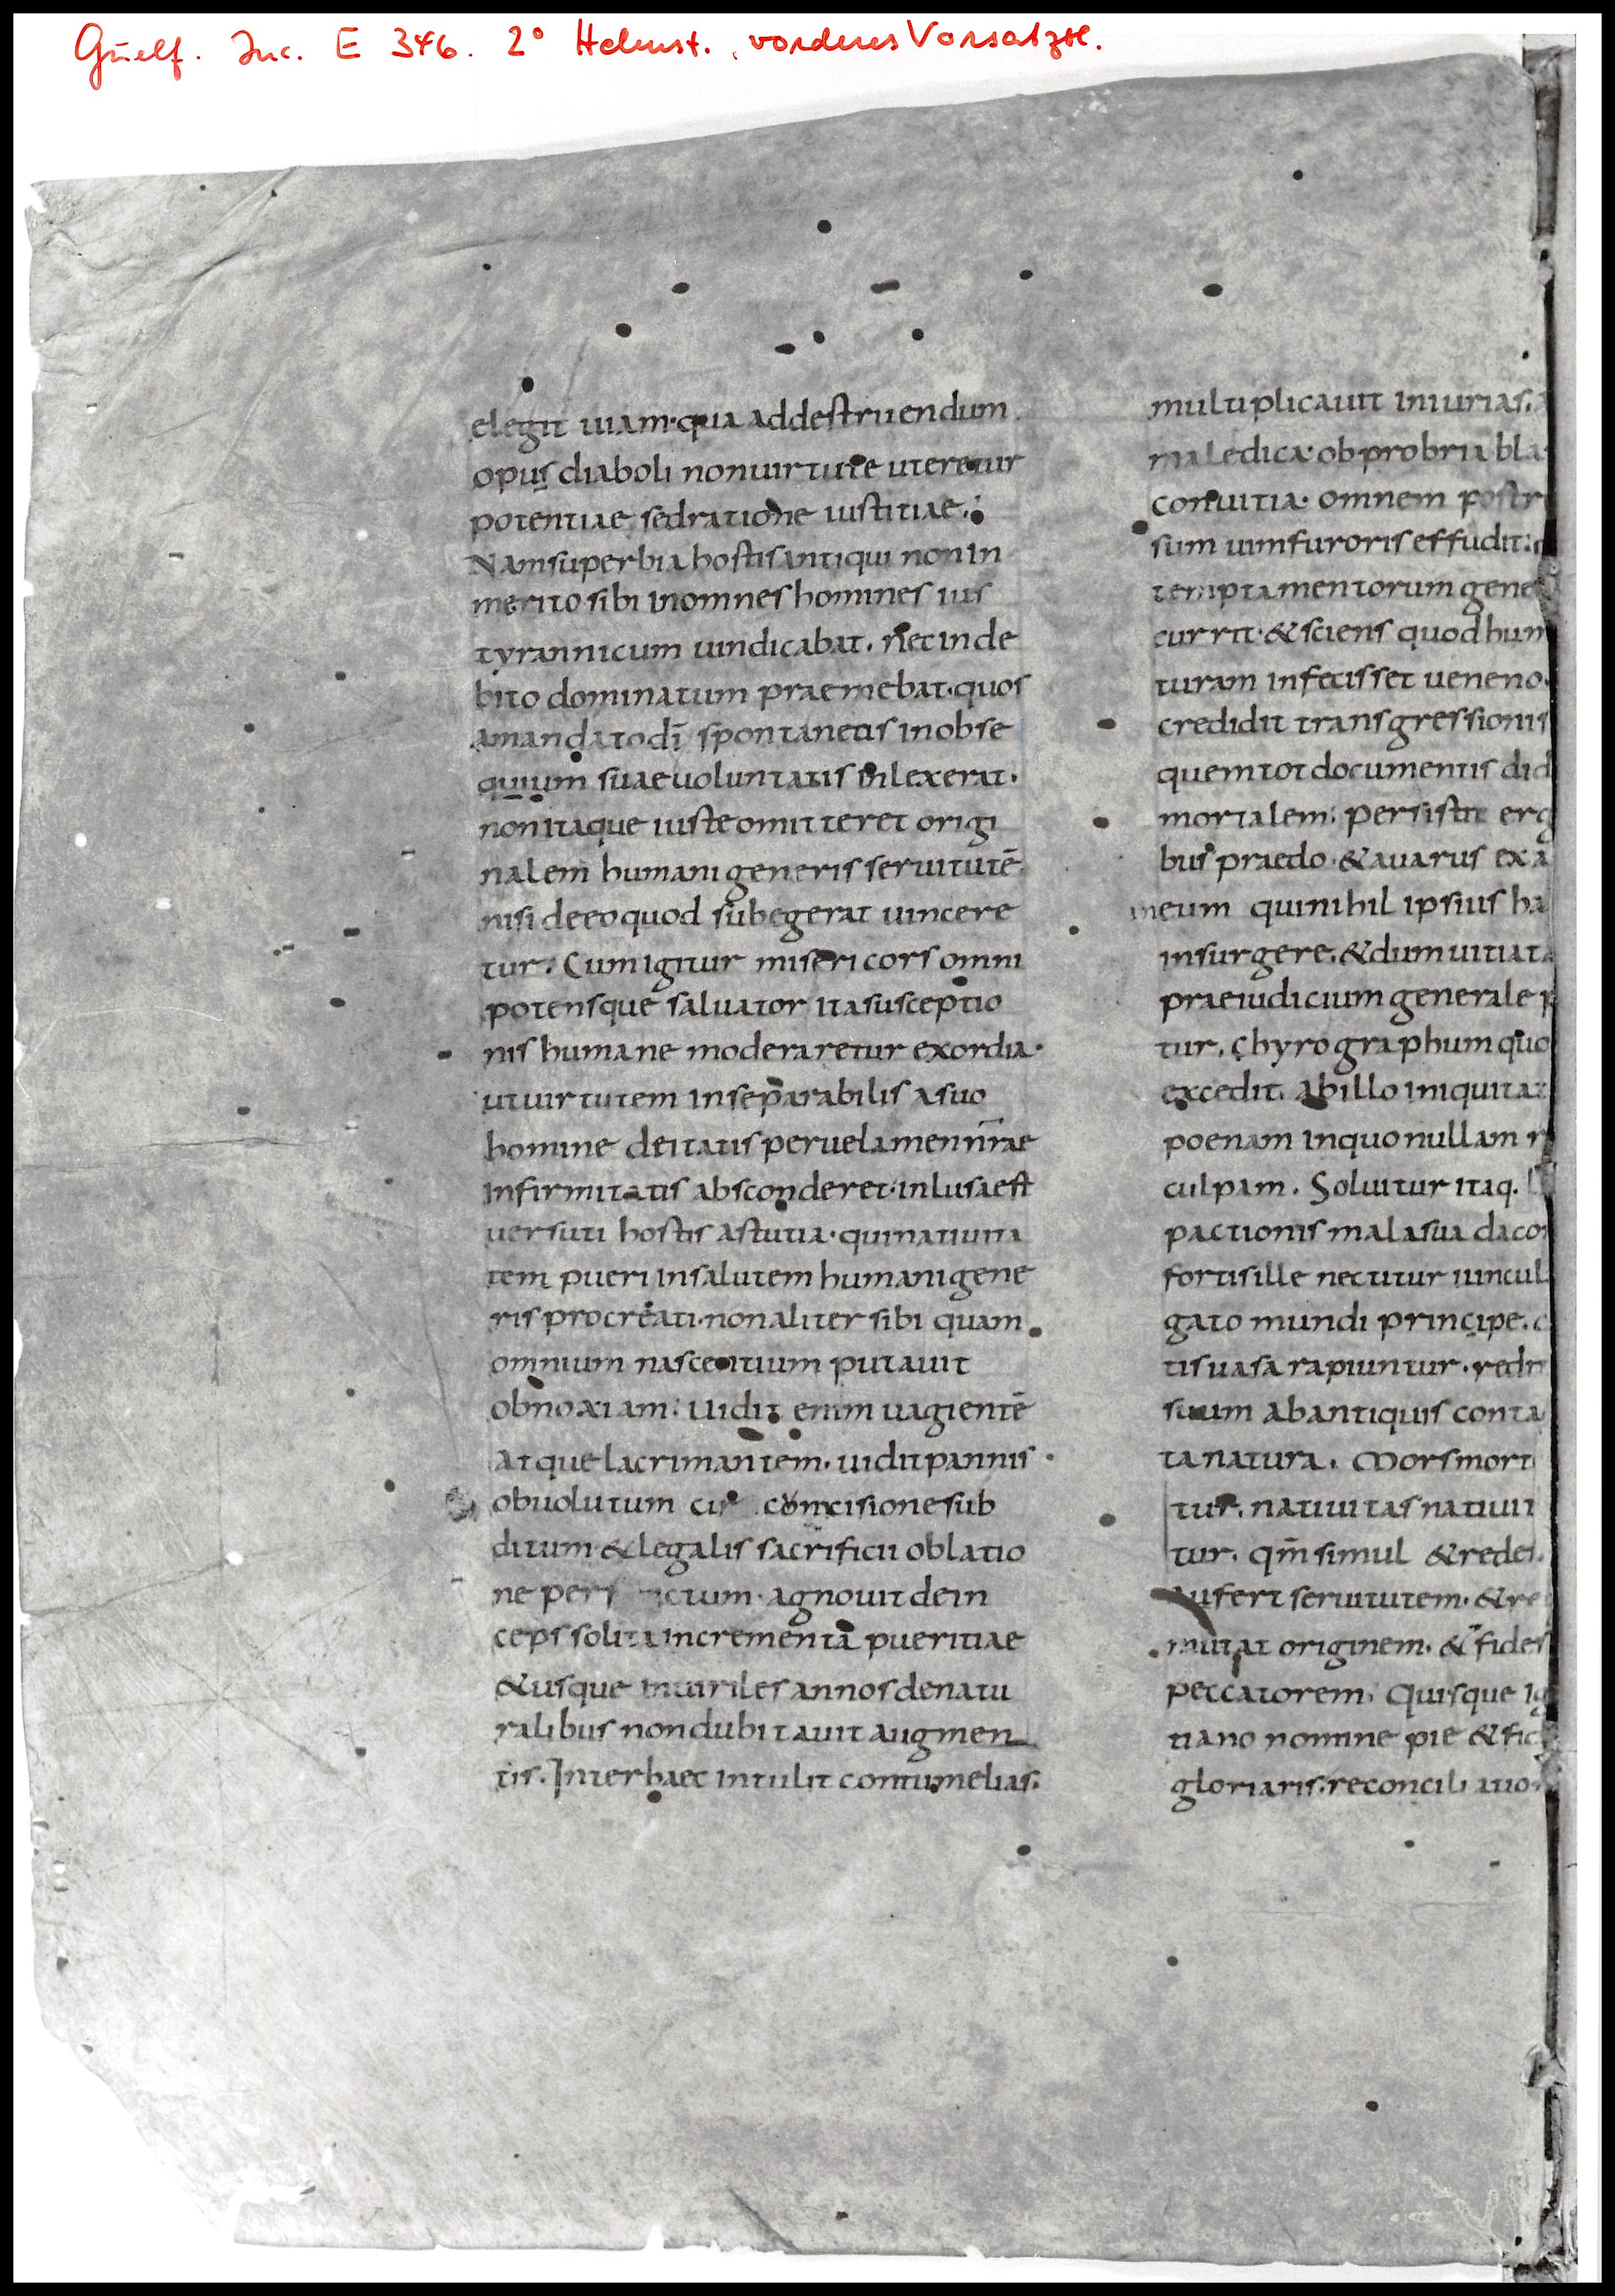 Guelf. Inc. E 346. 2° Helmst., vorderes Vorsatzbl.
elegit uiam·qua addestruendum
opus diaboli nonuirtute uteretur
potentiae sedratione iustitiae.
Namsuperbia hostisantiqui nonin
merito sibi inomnes homines ius
tyrannicum uindicabat. nec inde
bito dominatum praemebat·quos
amandatodī spontaneus inobse
quium suae uoluntatis inlexerat.
nonitaque iuste omitteret origi
nalem humanigeneris seruitutē.
nisi deeo quod subegerat uincere
tur. Cumigitur misericors omni
potensque saluator itasusceptio
nis humane moderaretur exordia·
utuirtutem inseparabilis asuo
homine deitatis peruelamen
infirmitatis absconderet·inlusaest
uersuti hostis astutia·quinatiuita
tem pueri insalutem humanigene
ris procreati·nonaliter sibi quam
omnium nascentium putauit
obnoxiam. Uidit enim uagientē
atque lacrimantem. uidit pannis
obuolutum concisione sub
ditum &legalis sacrificii oblatio
ne agnouit dein
ceps solita incrementa pueritiae
&usque inuiriles annos denatu
ralibus nondubitauit augmen
tis. Interhaec intulit contumelias.
multiplicauit iniurias.
maledica·obprobria bla
conuitia· omnem postr
sum uimfuroris effudit.
temptamentorum gene
currit·&sciens quod hum
turam infecisset ueneno.
credidit transgressionis
quemtot documentis did
mortalem. persistit erg
bus praedo·&auarus exa
meum quinihil ipsius ha
insurgere.&dum uitiata
praeiudicium generale p
tur. chyrographum quo
excedit. abillo iniquitat
poenam inquo nullam r
culpam. Soluitur itaq.
pactionis malasua daco
fortisille nectitur uincul
gato mundi principe. c
tisuasa rapiuntur. redit
suum abantiquis conta
tanatura. Morsmort
tur. natiuitas natiuit
tur. qm̄ simul &rede
aufert seruitutem. &re
mutat originem. &fides
peccatorem. Quisque ig
tiano nomine pie &fid
gloriaris. reconciliatio